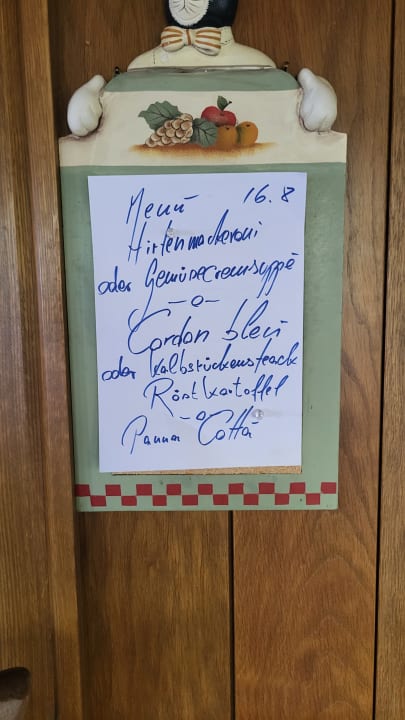 Menü 16.8
Hirtenmackeroni
oder Gemüsecremsuppe
-o-
Cordon bleu
oder Kalbsrückensteack
Röstkartoffel
-o-
Panna Cotta